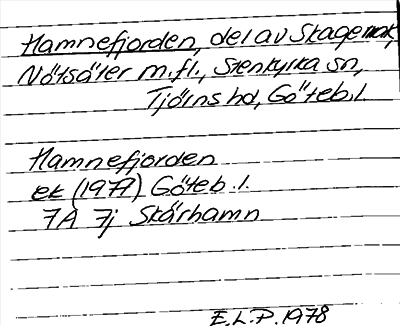 Hamnefjorden, del av Skagerrak,
Nötsäter m.fl., Stenkyrka sn,
Tjörns hd, Göteb.l.
Hamnefjorden
ek (1977) Göteb.l.
7A 7j Skärhamn
E.L.P. 1978